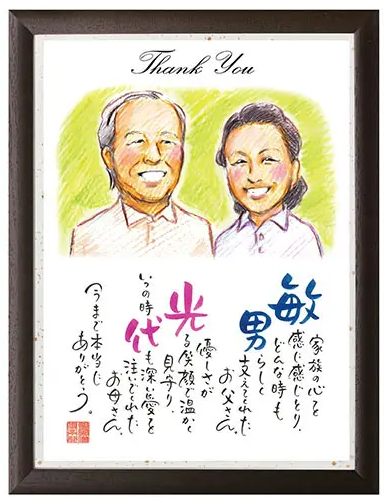 Thank You
家族の心を
敏感に感じとり、
どんな時も
男らしく
支えてくれた
お父さん。
優しさが
光る笑顔で温かく
見守り
いつの時
代も深い愛を
注いでくれた
お母さん。
今まで本当に
ありがとう。